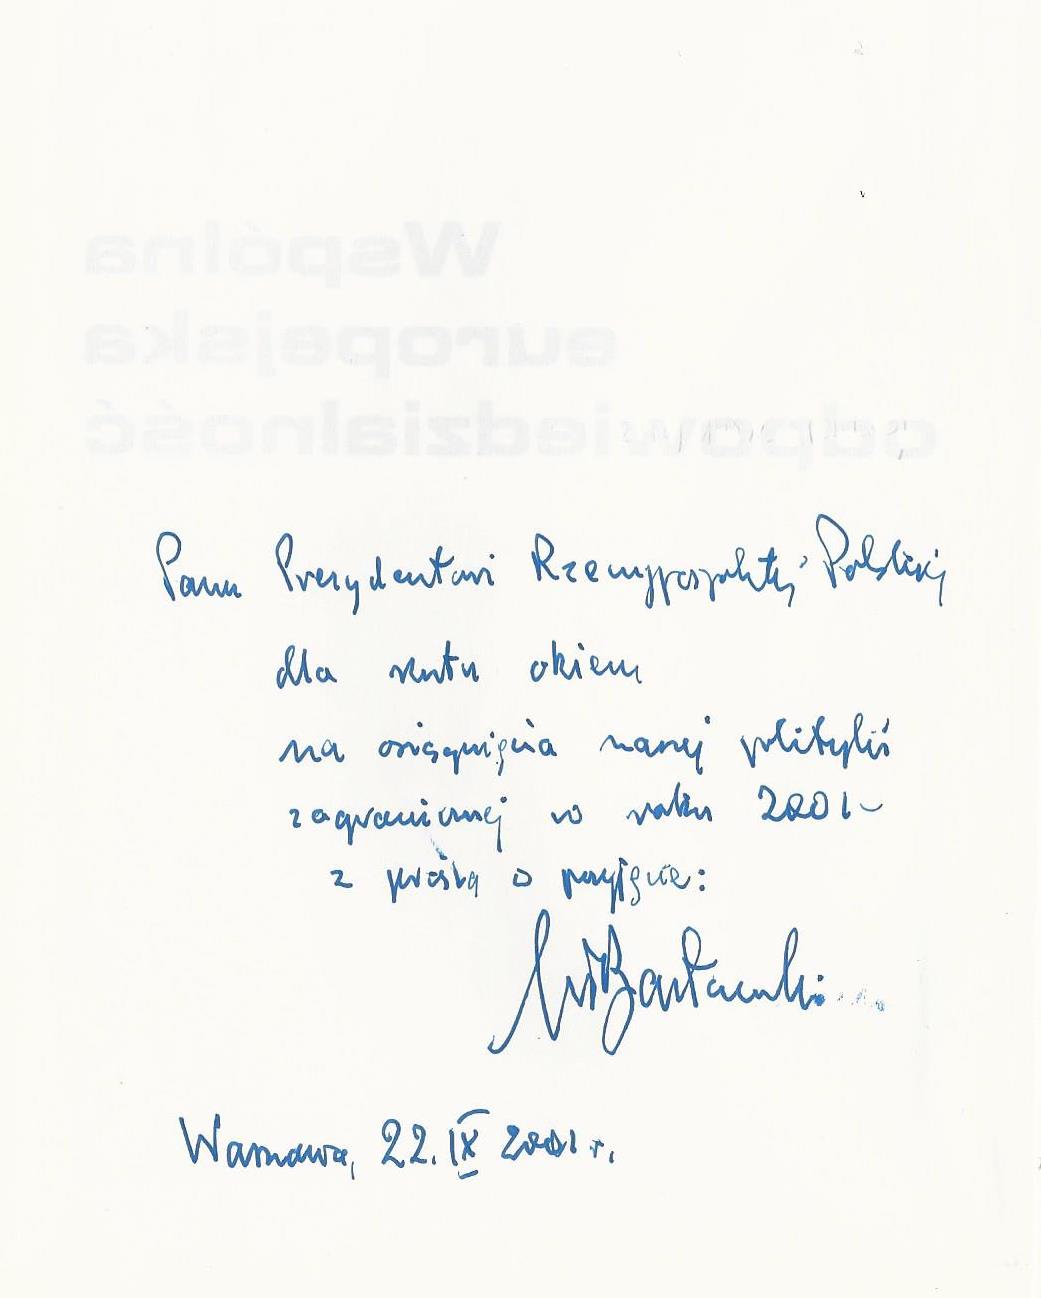 Wspólna
europejska
odpowiedzialność
Panu Prezydentowi Rzeczypospolitej Polskiej
dla rzutu okiem
na osiągnięcia naszej polityki
zagranicznej w roku 2001 –
z prośbą o przyjęcie:
Wł Bartoszewski
Warszawa, 22. IX 2001 r.